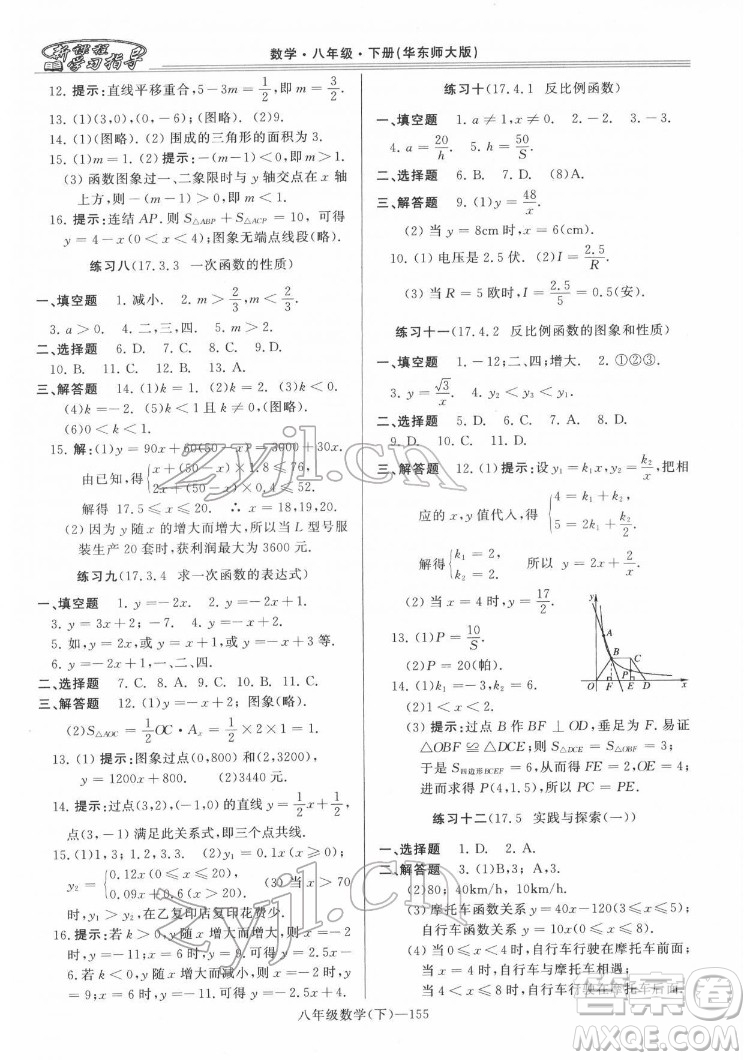 新课程学习指导
数学·八年级·下册(华东师大版)
12. 提示:直线平移重合,5-3m=1/2,即 m=3/2.
13. (1)(图略). (2)9.
14. (1)(图略). (2) 围成的三角形的面积为 3.
15. (1)m=1. (2) 提示:-(m-1)<0,即 m>1.
(3) 函数图象过一、二象限时与 y 轴交点在 x 轴
上方,则-(m-1)>0,即 m<1.
16. 提示:连结 AP. 则 S△ABP+S△ACP=10, 可得
y=4-x(0<x<4);图象无端点线段(略).
练习八(17.3.3 一次函数的性质)
一、填空题 1. 减小. 2. m>2/3, m<2/3.
3. a>0. 4. 二、三. 5. 四.
二、选择题 6. D. 7. C. 8. D. 9. C.
10. B. 11. C. 12. B. 13. A.
三、解答题 14. (1)k=1. (2)k>0. (3)k<0.
(4)k=-2. (5) k≠0, 且 k≠1(图略).
(6)0<k<1.
15. 解:(1)y=90x+60(50-x)=3000+30x.
由已知,得{x+(50-x)×1.8≤76,
2x+(50-x)×0.4≤52.
解得 17.5≤x≤20. ∴x=18,19,20.
(2) 因为 y 随 x 的增大而增大,所以当 L 型号服
装生产 20 套时,获利润最大为 3600 元.
练习九(17.3.4 求一次函数的表达式)
一、填空题 1. y=-2x. 2. y=-2x+1.
3. y=3x+2; -7. 4. y=-2x+3.
5. 如,y=x,或 y=x+1,或 y=x+2 等.
6. y=-x+1,一、二、四.
二、选择题 7. C. 8. A. 9. D. 10. A. 11. A.
三、解答题 12. (1)y=-x+2;图象(略).
(2)S△AOC=1/2 OC·Ax=1/2×2×1=1.
13. (1) 提示:图象过点(0,800)和点(2,3200),得
y=1200x+800; (2)3440 元.
14. 提示:过点(3,2),(-1,0)的直线 y=1/2x+1/2,
点(1,1)满足此关系式,即三个点共线.
15. (1)1, 3. (2)y1=0.1x(x≥0);
y2={0.12x(0<x≤20)
0.09x+0.6(x>20) (3) 当 x>70
时,y1>y2,在乙复印店复印花费少.
16. 提示:有 y 随 x 增大而增大,则当 x=-1,y=
-11;当 x=6,y=9;得一次函数 y=2.5x-
6.若有 y 随 x 增大而减小,则当 x=-1,y=
9;当 x=6,y=-11,得一次函数 y=-2.5x+6.
练习十(17.4.1 反比例函数)
一、填空题 1. a≠1. 2. y=1/x. 3. 1.
4. a=20/h. 5. h=50/S.
二、选择题 6. B. 7. D. (8)A.
三、解答题 9. (1)y=48/x.
(2) 当 y=8cm 时,x=6(cm).
10. (1) 电压是 2.5 伏. (2)I=2.5/R.
(3) 当 R=5 欧时,I=2.5/5=0.5(安).
练习十一(17.4.2 反比例函数的图象和性质)
一、填空题 1. -12;二、四;增大. 2. ①②③.
3. y=√3/x. 4. y2<y1<y3.
二、选择题 5. D. 6. C. 7. A. 8. A.
9. D. 10. A. 11. C.
三、解答题 12. (1) 提示:设 y1=k1x,y2=k2/x,把相
应的 x,y 值代入,得{4=k1+k2,
5=2k1+k2/2.
解得{k1=2,
k2=2. 所以 y=2x+2/x.
(2) 当 x=4 时,y=17/2.
13. (1)P=10/S.
(2)P=20(帕).
14. (1)k1=-3,k2=6.
(2)1<x<2.
y
A
B
C
P
E
O
F
D
x
(3) 提示:过点 B 作 BF⊥OD,垂足为 F. 易证
△OBF≌△DCE;则 S△DCE=S△OBF=3;
于是 S四边形BCEF=6,S△PCE=3.
进而求出 P(4,1.5),则 PE=PC.
练习十二(17.5 实践与探索(一))
一、选择题 1. B. 2. D.
二、解答题 3. (1)B,3;A,3.
(2)80;40km/h,10km/h.
(3) 摩托车函数关系 y=40x-120(3≤x≤5);
自行车函数关系 y=10x(0≤x≤8)
(4) 当 0<x<4 时,自行车行驶在摩托车前面;
当 x=4 时,自行车与摩托车相遇;
八年级数学(下)—155
zyjl.cn
zyjl.cn
答案圈
MXQE.COM